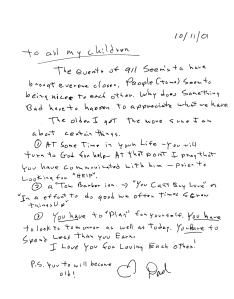 10/11/01
To all my children
The events of 911 seems to have
brought everone closer. People (towns) seem to
being nicer to each other. Why does something
Bad have to happen to appreciate what we have
The older I get the more sure I am
about certain things.
① At Some Time in your Life you will
turn to God for help. At that point I pray that
you have communicated with him - prior to
Looking for "HELP".
② a Tom Bunker ion. → "You Can't Buy Love" or
"In a effort to do good we often times screw
things up"
③ You have to "Plan" for yourself. You have
to look to tomorrow as well as Today. You Have to
Spend Less than you Earn.
I Love You for Loving Each other!
P.S. You to will become
old!
Dad